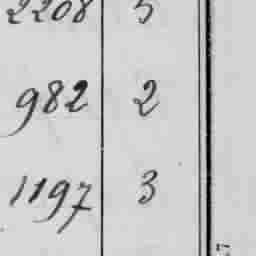 2208 5
982 2
1197 3